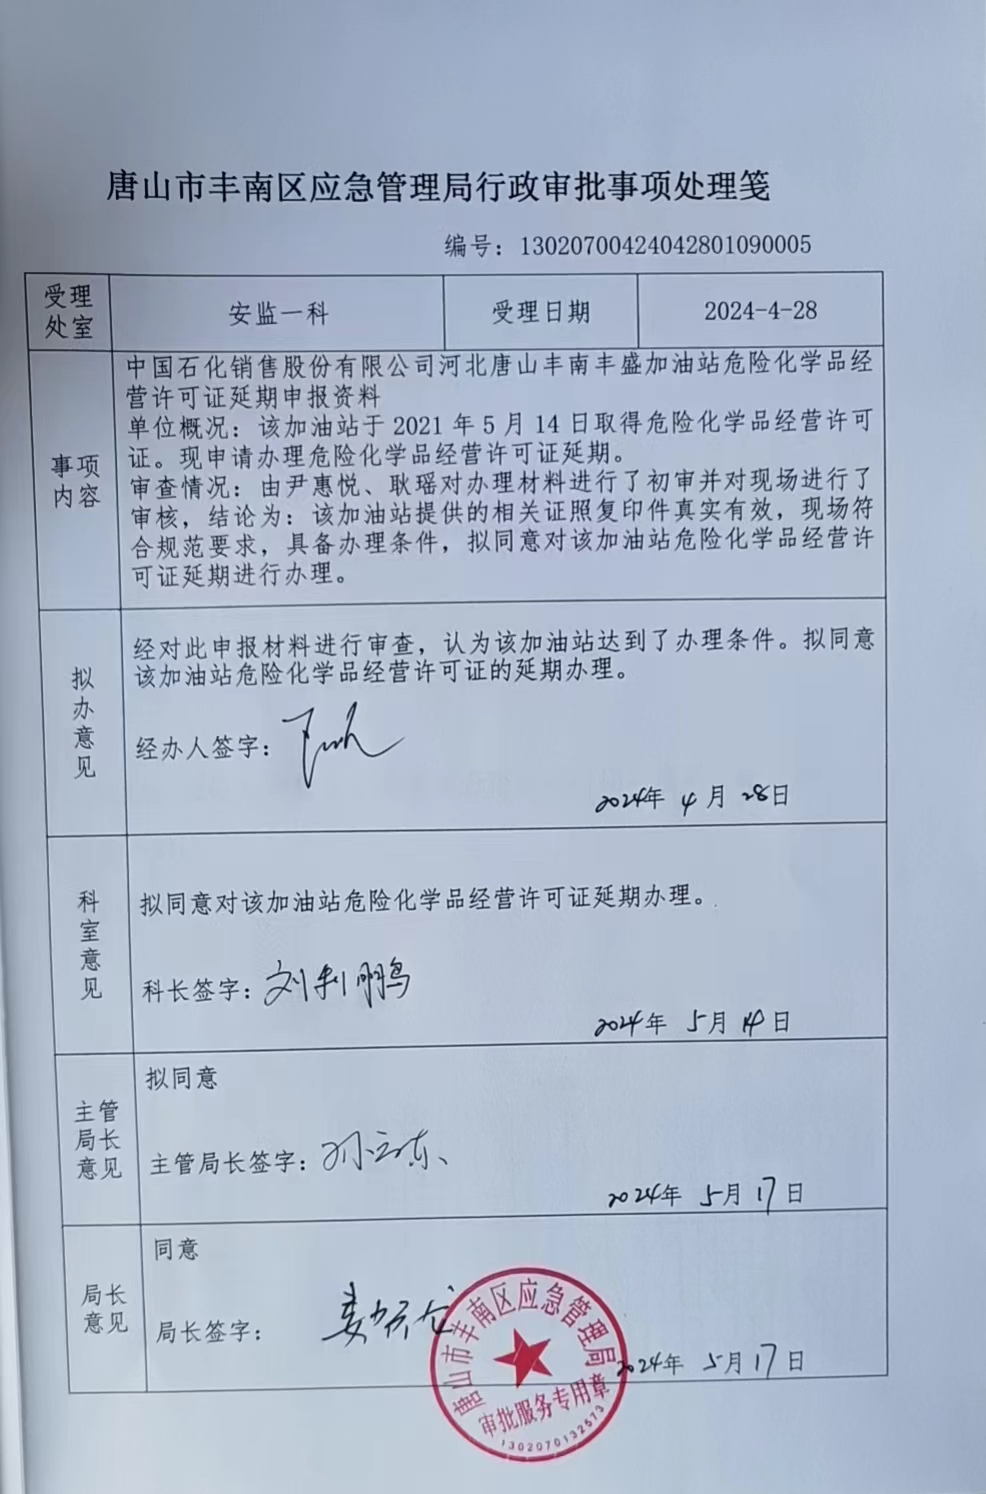 唐山市丰南区应急管理局行政审批事项处理笺
编号：13020700424042801090005
受理
处室
安监一科
受理日期
2024-4-28
事项
内容
中国石化销售股份有限公司河北唐山丰南丰盛加油站危险化学品经
营许可证延期申报资料
单位概况：该加油站于 2021 年 5 月 14 日取得危险化学品经营许可
证。现申请办理危险化学品经营许可证延期。
审查情况：由尹惠悦、耿瑶对办理材料进行了初审并对现场进行了
审核，结论为：该加油站提供的相关证照复印件真实有效，现场符
合规范要求，具备办理条件，拟同意对该加油站危险化学品经营许
可证延期进行办理。
拟
办
意
见
经对此申报材料进行审查，认为该加油站达到了办理条件。拟同意
该加油站危险化学品经营许可证的延期办理。
经办人签字：
2024年 4 月 28日
科
室
意
见
拟同意对该加油站危险化学品经营许可证延期办理。
科长签字：刘利鹏
2024年 5月 14日
主管
局长
意见
拟同意
主管局长签字：孙立东
2024年 5月 17日
局长
意见
同意
局长签字：
2024年 5月 17日
唐山市丰南区应急管理局
审批服务专用章
1302070132573